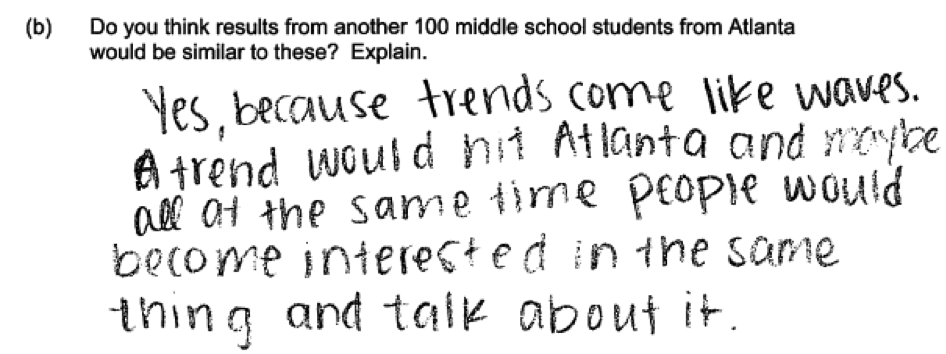 (b) Do you think results from another 100 middle school students from Atlanta
would be similar to these? Explain.
Yes, because trends come like waves.
A trend would hit Atlanta and maybe
all at the same time people would
become interested in the same
thing and talk about it.